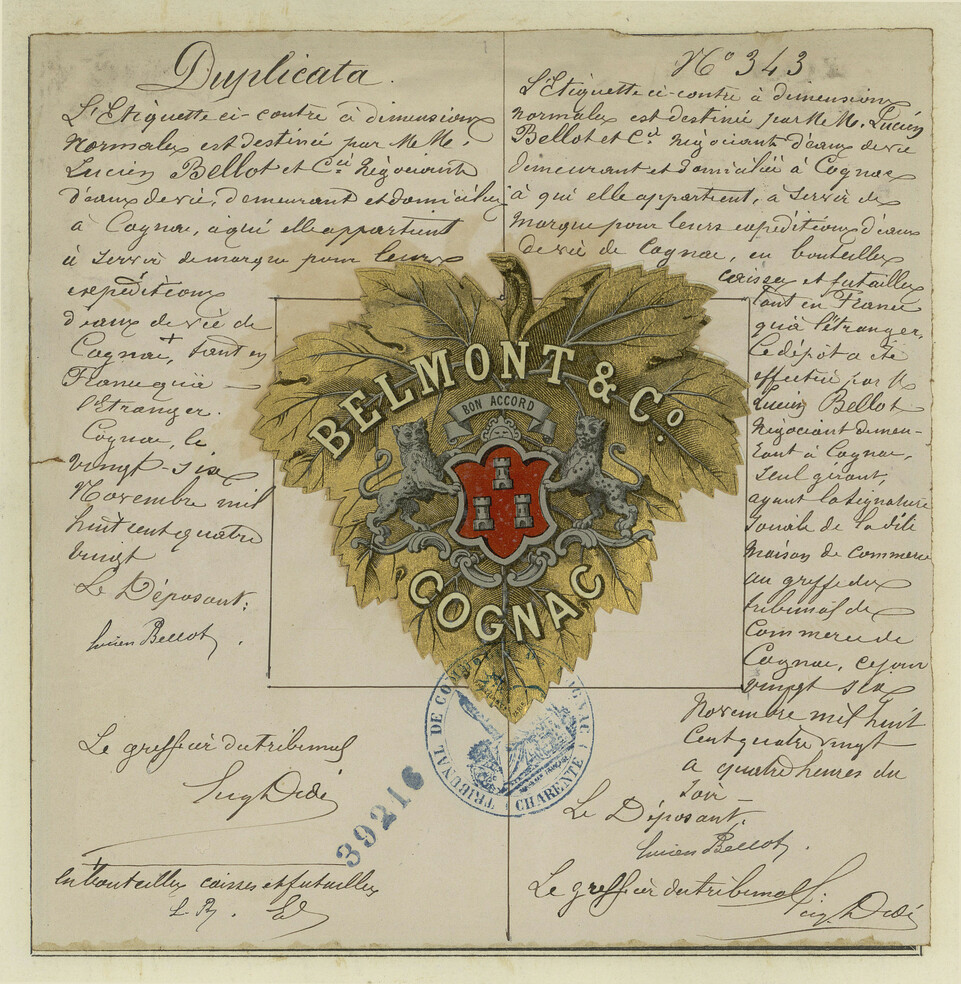 Duplicata.
L'Etiquette ci-contre à dimensions
Normales est destinée par M.M.
Lucien Bellot et Cie Négociants
d'eaux de vie, demeurant et domiciliés
à Cognac, à qui elle appartient
à servir de marque pour leurs
expéditions
d'eaux de vie de
Cognac, tant en
France qu'à
l'Etranger.
Cognac, le
vingt-six
Novembre mil
huit cent quatre
vingt
Le Déposant:
Lucien Bellot
Le greffier du tribunal
39216
en bouteilles caisses et futailles
L. B.
BELMONT & Co
BON ACCORD
COGNAC
TRIBUNAL DE
CHARENTE
No 343
L'Etiquette ci-contre à dimensions
normales est destinée par M.M. Lucien
Bellot et Cie Négociants d'eaux de vie
demeurant et domiciliés à Cognac
à qui elle appartient, à servir de
marque pour leurs expéditions d'eaux
de vie de Cognac, en bouteilles
caisses et futailles
tant en France
qu'à l'étranger.
Le dépôt a été
effectué par M
Lucien Bellot
Négociant demeu-
rant à Cognac,
seul gérant,
ayant la signature
sociale de la dite
maison de commerce
au greffe du
tribunal de
Commerce de
Cognac, ce jour
vingt six
Novembre mil huit
Cent quatre vingt
a quatre heures du
soir
Le Déposant:
Lucien Bellot.
Le greffier du tribunal: